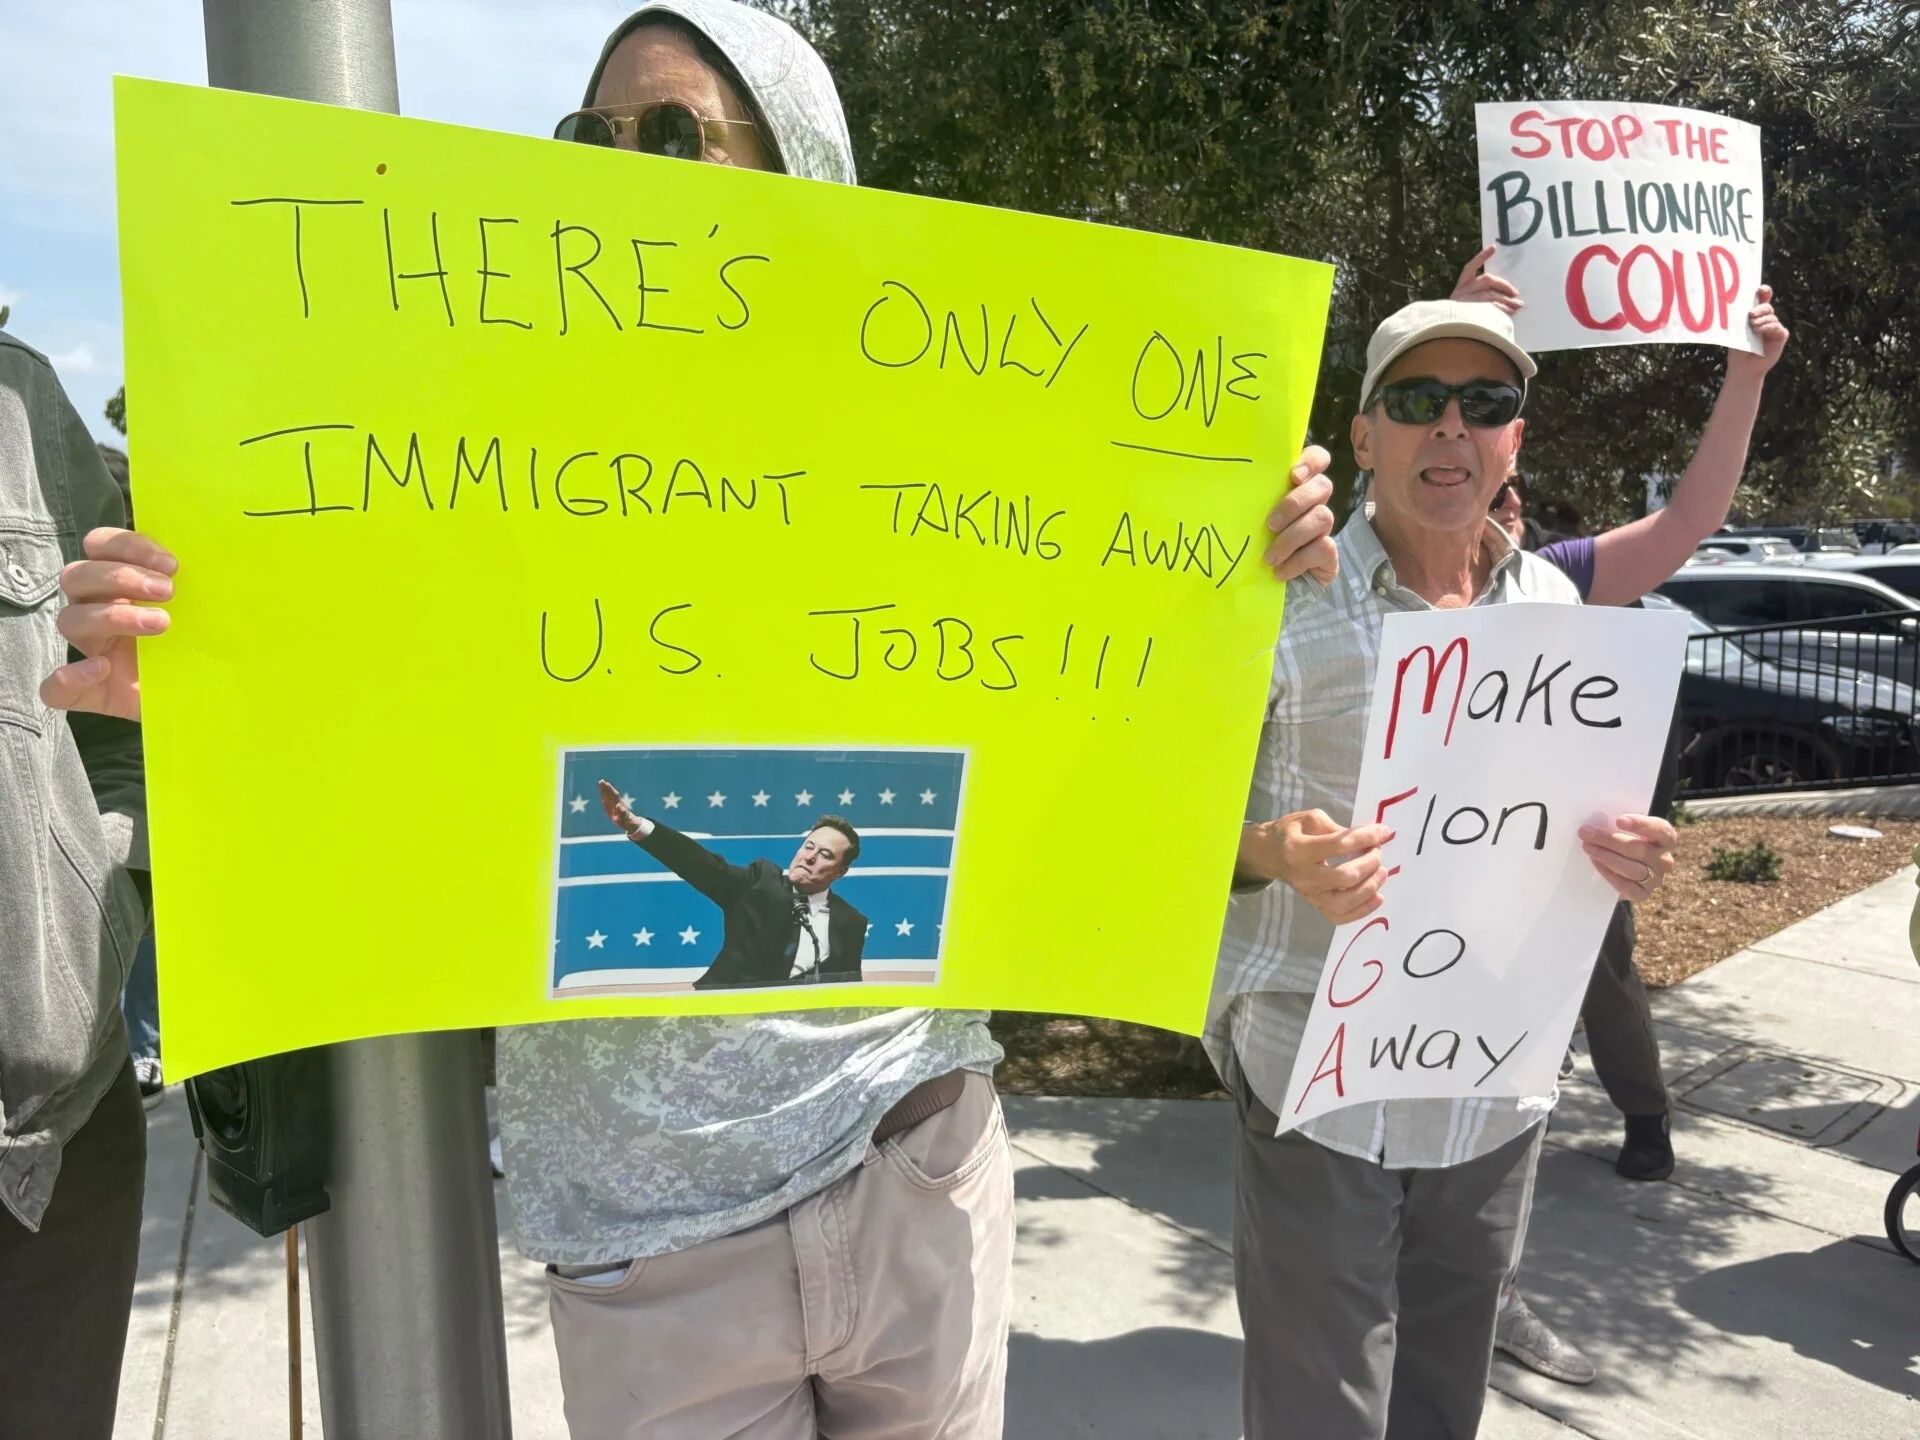 THERE'S ONLY ONE
IMMIGRANT TAKING AWAY
U.S. JOBS!!!
STOP THE
BILLIONAIRE
COUP
Make
Elon
Go
Away